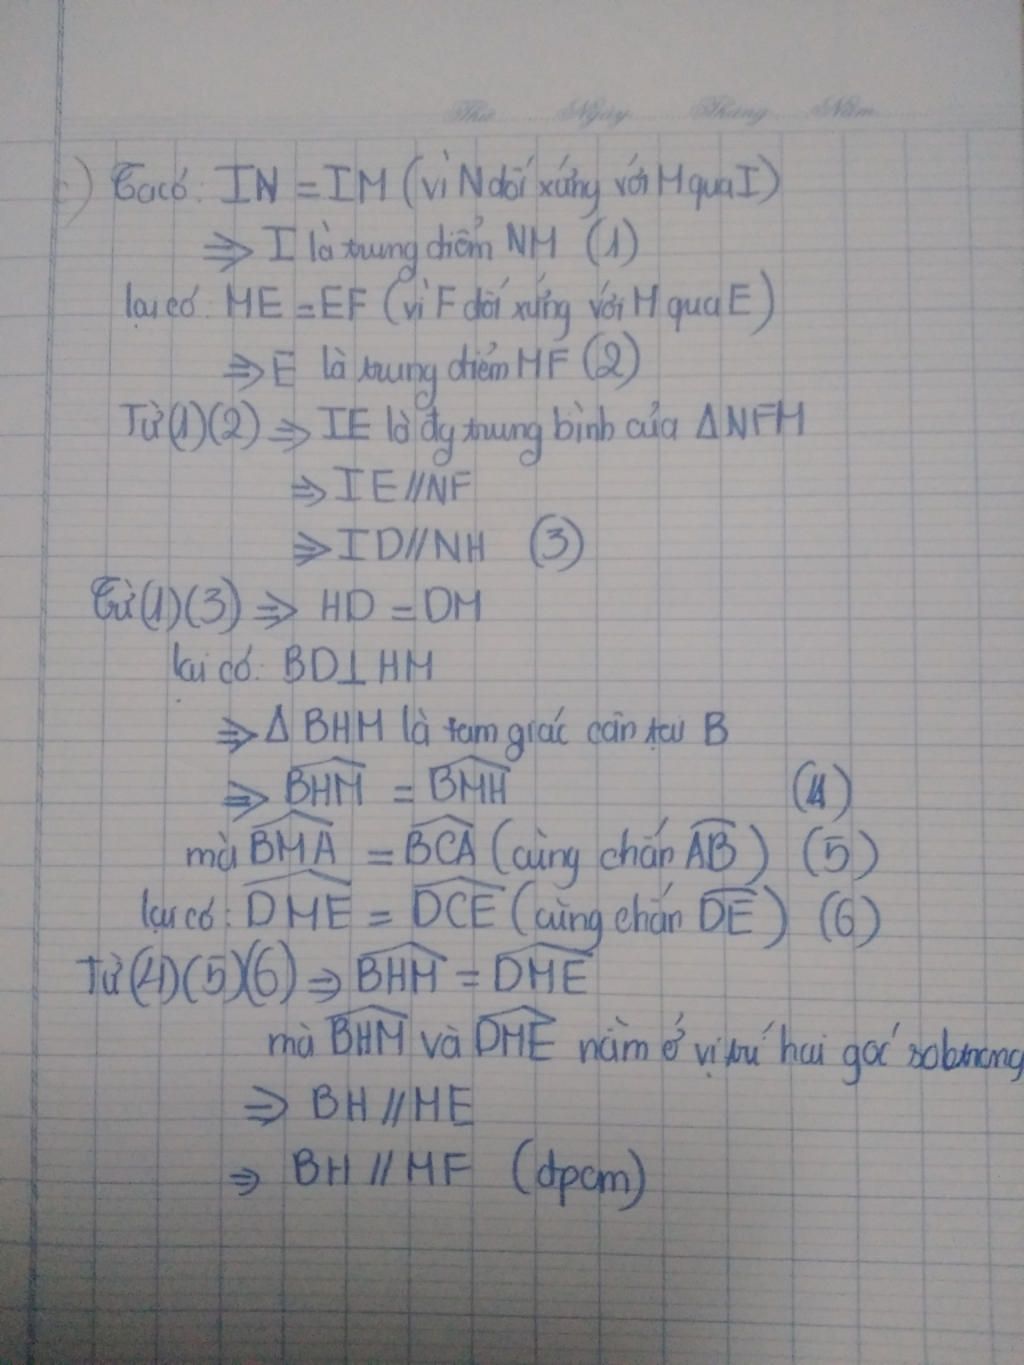 Thứ Ngày Tháng Năm
c) Ta có: IN = IM (vì N đối xứng với M qua I)
⇒ I là trung điểm NM (1)
lại có: ME = EF (vì F đối xứng với M qua E)
⇒ E là trung điểm MF (2)
Từ (1)(2) ⇒ IE là đg trung bình của ΔNFM
⇒ IE//NF
⇒ ID//NH (3)
Từ (1)(3) ⇒ HD = DM
lại có: BD⊥HM
⇒ Δ BHM là tam giác cân tại B
⇒ \widehat{BHM} = \widehat{BMH} (4)
mà \widehat{BMA} = \widehat{BCA} (cùng chắn \widehat{AB}) (5)
lại có: \widehat{DME} = \widehat{DCE} (cùng chắn \widehat{DE}) (6)
Từ (4)(5)(6) ⇒ \widehat{BHM} = \widehat{DME}
mà \widehat{BHM} và \widehat{DME} nằm ở vị trí hai góc soletrong
⇒ BH // ME
⇒ BH // MF (đpcm)